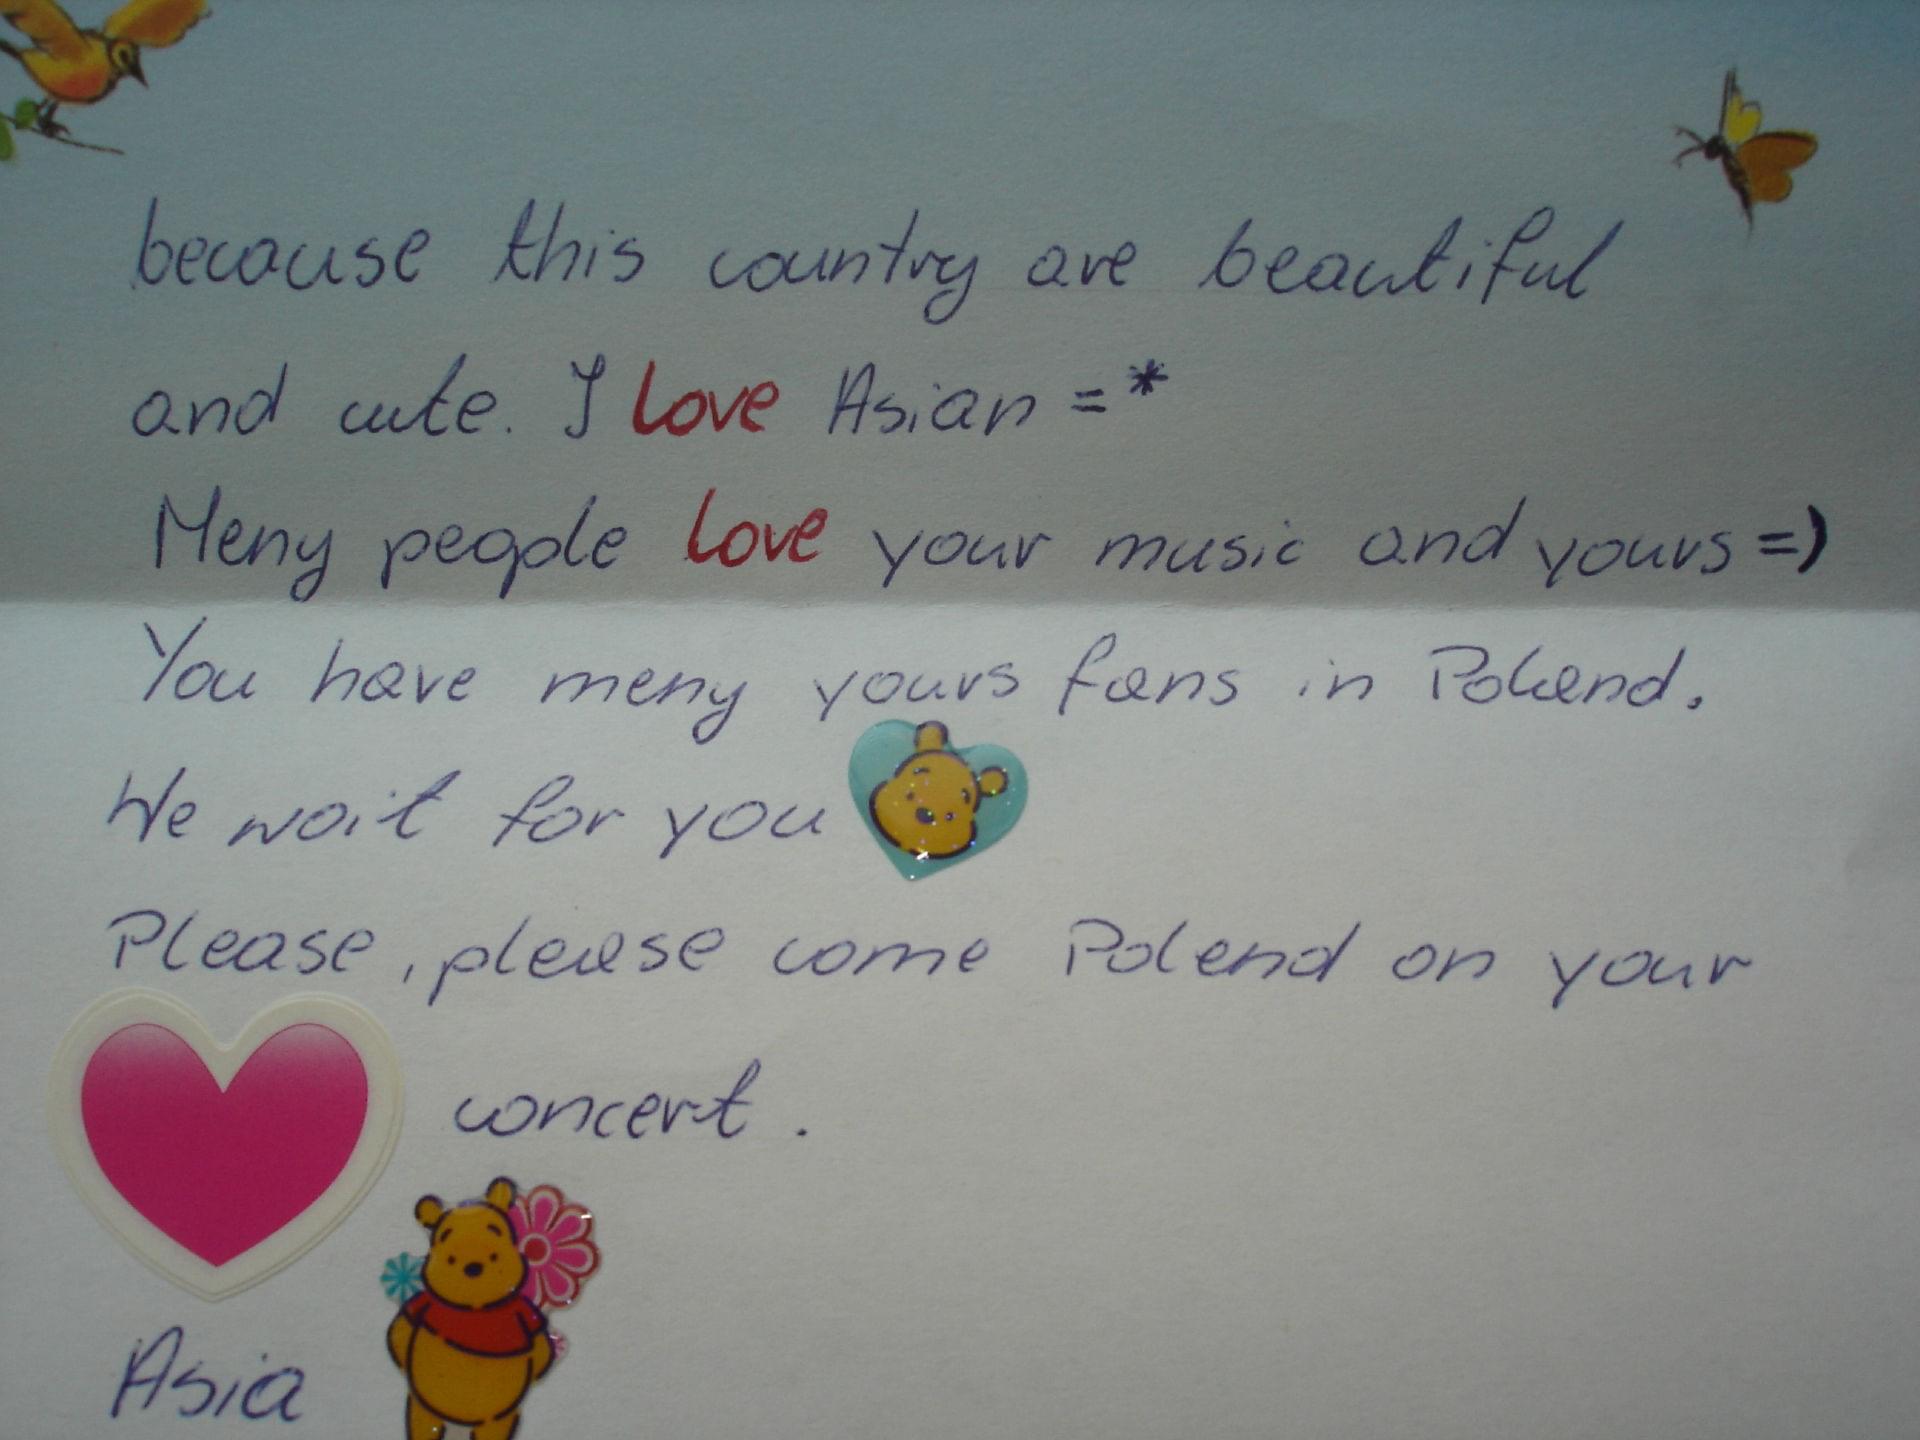 because this country are beautiful
and cute. I love Asian =*
Meny people love your music and yours =)
You have meny yours fans in Polend.
We wait for you
Please, please come Polend on your
concert.
Asia